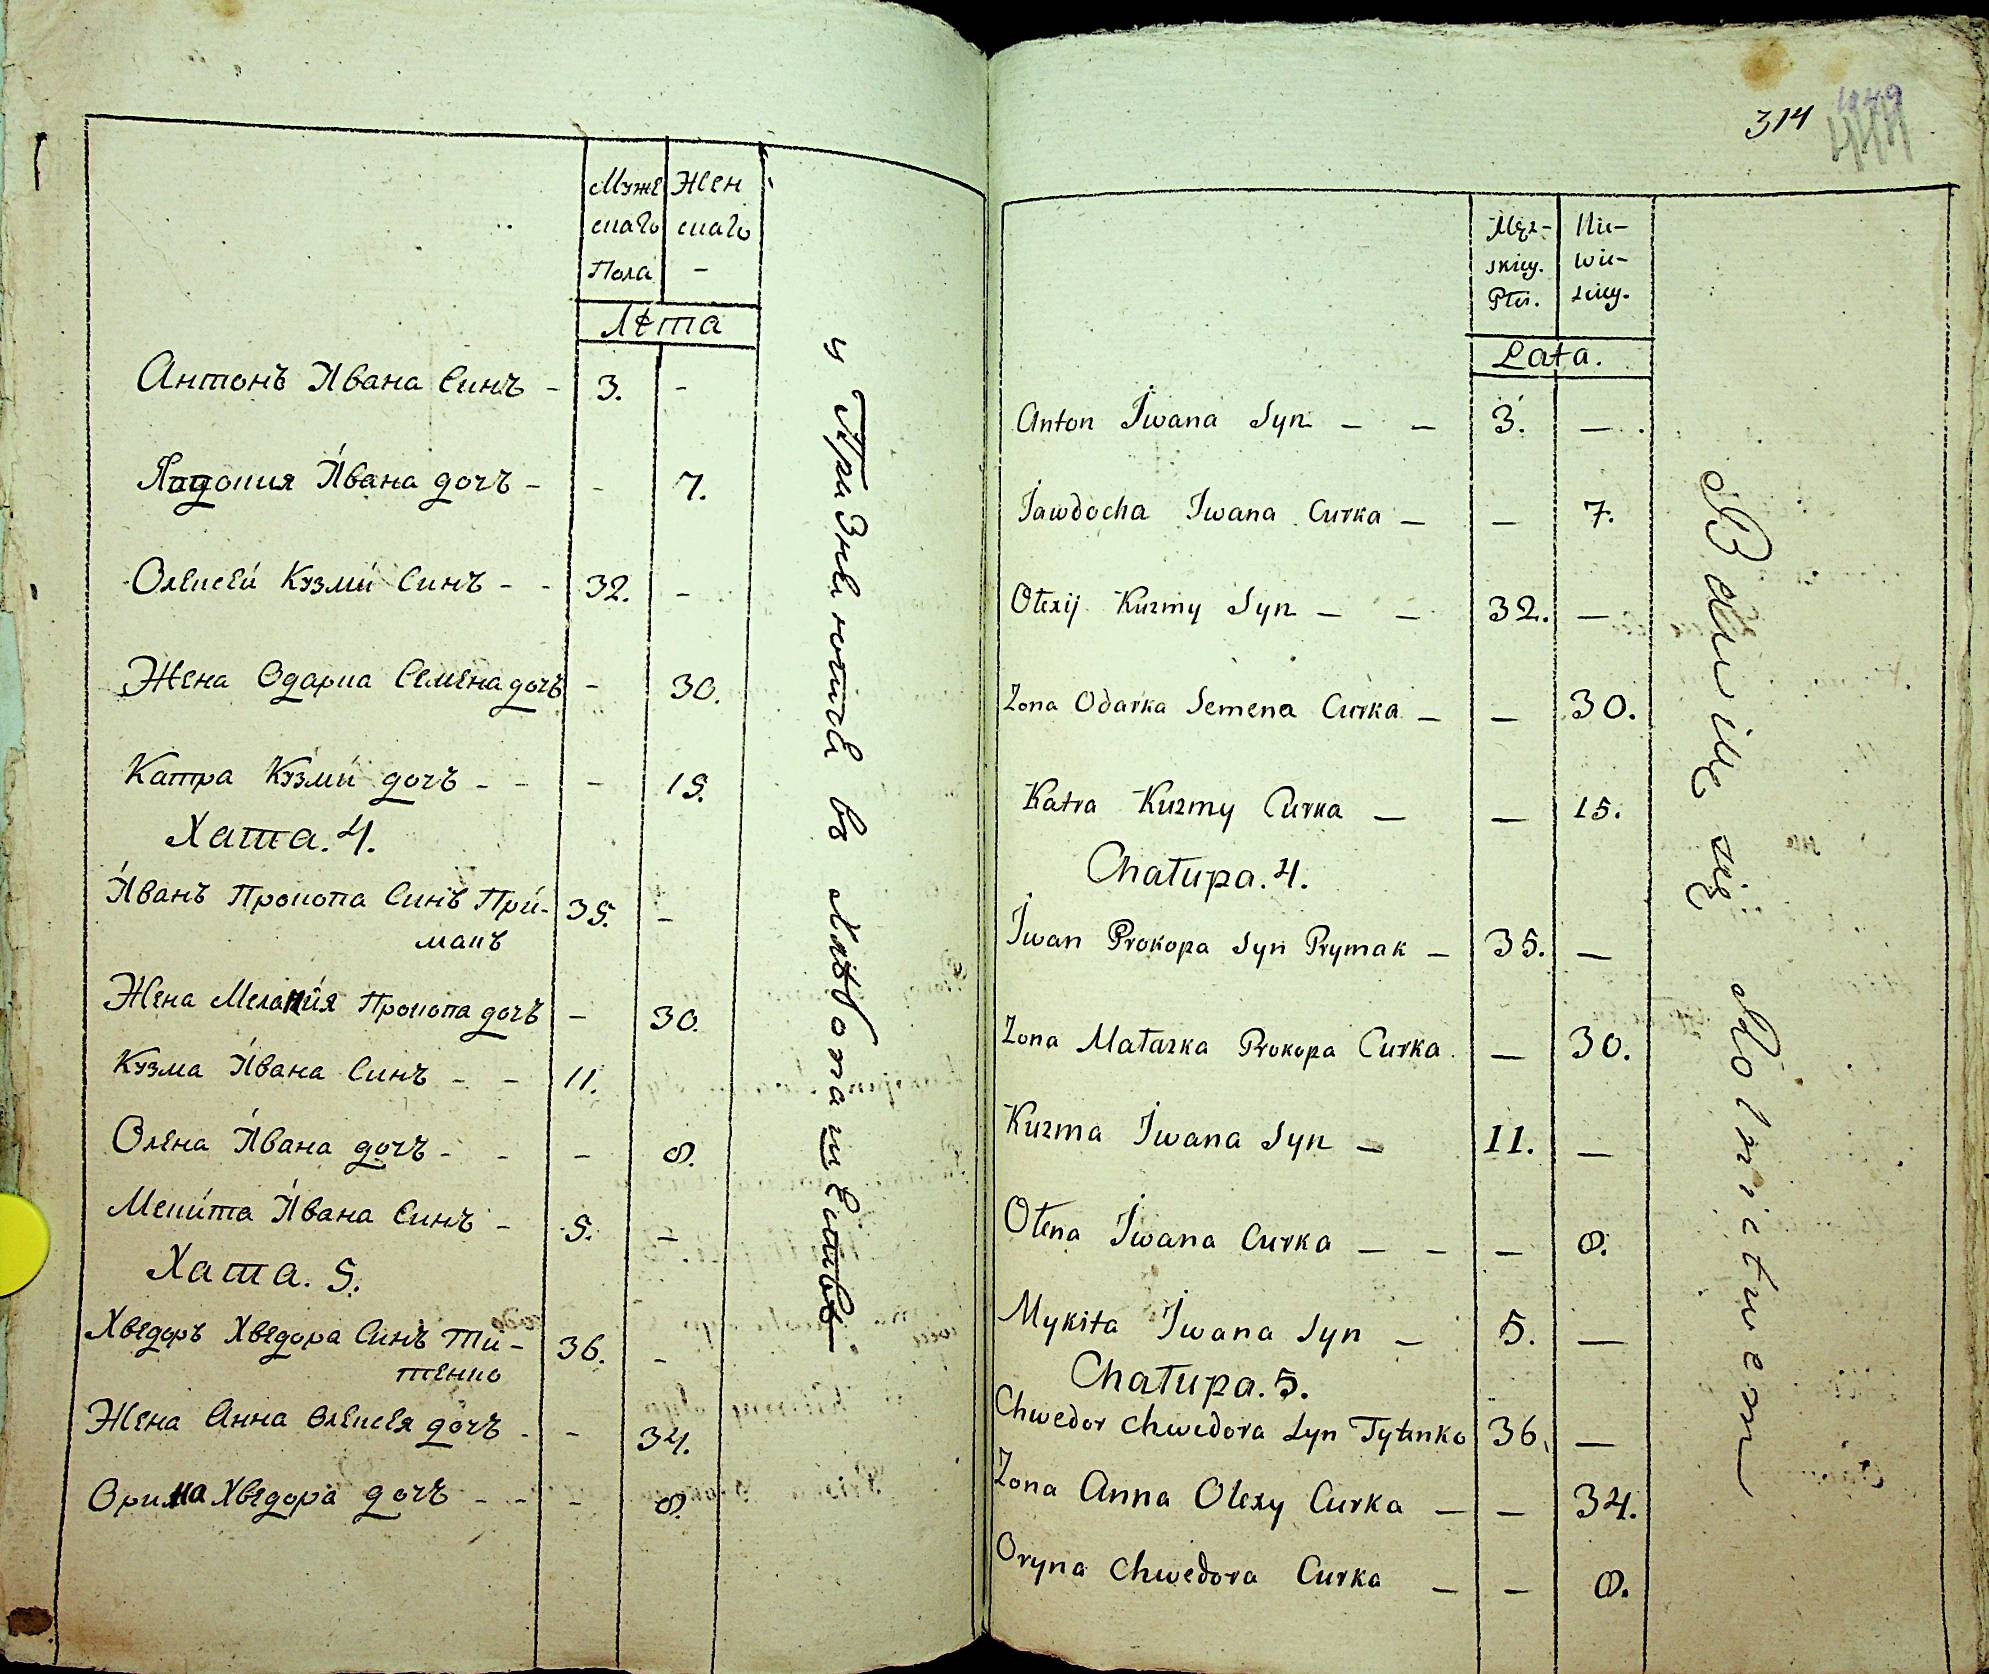 Муже Жен
скаго скаго
Пола -
Лѣта
Антонъ Ивана Синъ - 3. -
Явдокия Ивана дочъ - - 7.
Олексей Кузми Синъ - - 32. -
Жена Одарка Семена дочъ - 30.
Катра Кузми дочъ - - - 15.
Хата. 4.
Иванъ Прокопа Синъ При- 35. -
макъ
Жена Мелания Прокопа дочъ - 30.
Кузма Ивана Синъ - - 11.
Олена Ивана дочъ - - - 8.
Мекита Ивана Синъ - 5. -
Хата. 5.
Хведоръ Хведора Синъ Ти- 36. -
тенко
Жена Анна Олексея дочъ - - 34.
Орина Хведора дочъ - - - 8.
и Празнекомъ въ
314
Męz- Nie-
skiey. wie-
Płci. sciey.
Lata.
Anton Iwana Syn — — 3. —
Jawdocha Iwana Curka — — 7.
Olexij Kuzmy Syn — — 32. —
Zona Odarka Semena Curka — — 30.
Katra Kuzmy Curka — — 15.
Chałupa. 4.
Iwan Prokopa Syn Prymak — 35. —
Zona Małaszka Prokopa Curka. — 30.
Kuzma Iwana Syn — 11. —
Ołena Iwana Curka — — — 8.
Mykita Iwana Syn — 5. —
Chałupa. 5.
Chwedor Chwedora Syn Tytenko 36. —
Zona Anna Olexy Curka — — 34.
Oryna Chwedora Curka — — 8.
Bawiię się Rolnictwem